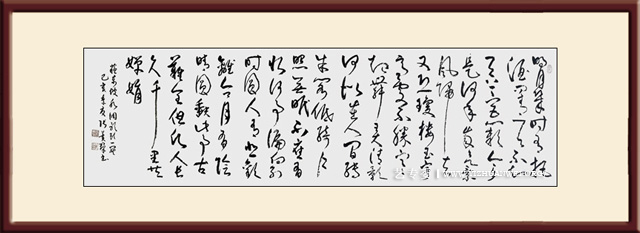 明月几时有把
酒问青天不知
天上宫阙今夕
是何年我欲乘
风归去
又恐琼楼玉宇
高处不胜寒
起舞弄清影
何似在人间转
朱阁低绮户
照无眠不应有
恨何事长向别
时圆人有悲欢
离合月有阴
晴圆缺此事古
难全但愿人长
久千里共
婵娟
苏东坡水调歌头一首
己亥年